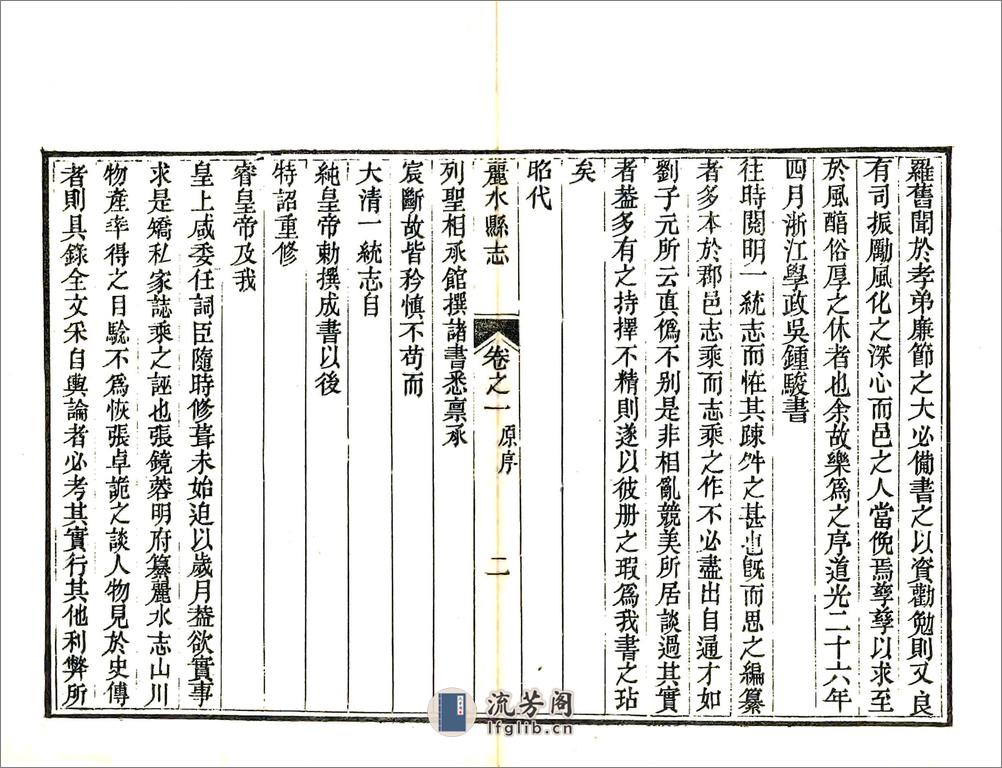 羅舊聞於孝弟廉節之大必備書之以資勸勉則又良
有司振勵風化之深心而邑之人當俛焉孳孳以求至
於風醇俗厚之休者也余故樂為之序道光二十六年
四月浙江學政吳鍾駿書
往時閱明一統志而恠其踈舛之甚也旣而思之編纂
者多本於郡邑志乘而志乘之作不必盡出自通才如
劉子元所云真僞不别是非相亂競美所居談過其實
者葢多有之持擇不精則遂以彼册之瑕為我書之玷
矣
昭代
麗水縣志 卷之一 原序 二
列聖相承館撰諸書悉禀承
宸斷故皆矜慎不苟而
大清一統志自
純皇帝勅撰成書以後
特詔重修
睿皇帝及我
皇上咸委任詞臣隨時修葺未始迫以歲月葢欲實事
求是矯私家誌乘之誣也張鏡蓉明府纂麗水志山川
物產率得之目驗不為恢張卓詭之談人物見於史傳
者則具錄全文采自輿論者必考其實行其他利弊所
流芳阁
lfglib.cn